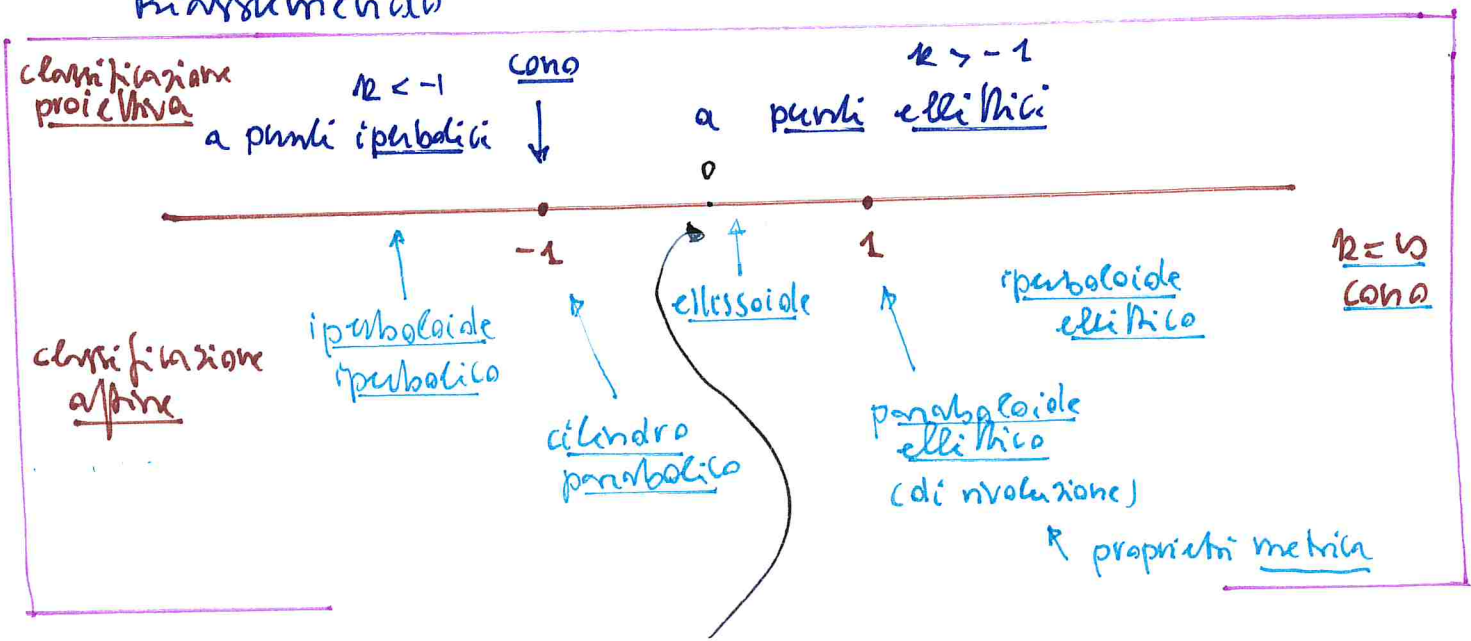 riassumendo
classificazione
proiettiva
k < -1
a punti iperbolici
cono
k > -1
a punti ellittici
0
-1
1
k = ∞
cono
classificazione
affine
iperboloide
iperbolico
cilindro
parabolico
ellissoide
paraboloide
ellittico
(di rivoluzione)
iperboloide
ellittico
proprietà metrica